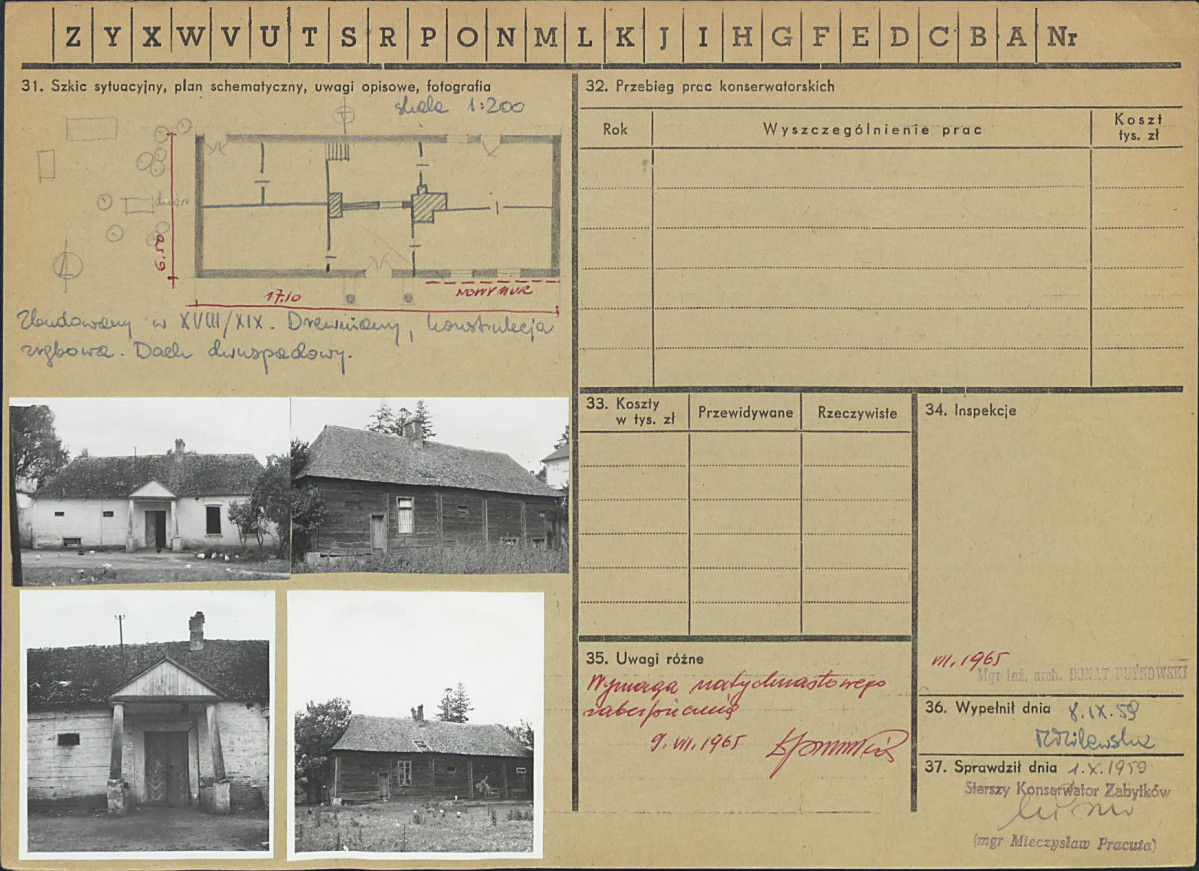 Z Y X W V U T S R P O N M L K J I H G F E D C B A Nr
31. Szkic sytuacyjny, plan schematyczny, uwagi opisowe, fotografia
skala 1:200
17.10
NOWY MUR
Zbudowany w XVIII/XIX. Drewniany, konstrukcja
zrębowa. Dach dwuspadowy.
32. Przebieg prac konserwatorskich
Rok
Wyszczególnienie prac
Koszt
tys. zł
33. Koszty
w tys. zł
Przewidywane
Rzeczywiste
34. Inspekcje
VII.1965
Mgr inż. arch. DONAT RUTKOWSKI
35. Uwagi różne
Wymaga natychmiastowego
zabezpieczenia
9.VII.1965
36. Wypełnił dnia 8.IX.59
37. Sprawdził dnia 1.X.1959
Starszy Konserwator Zabytków
(mgr Mieczysław Pracuta)